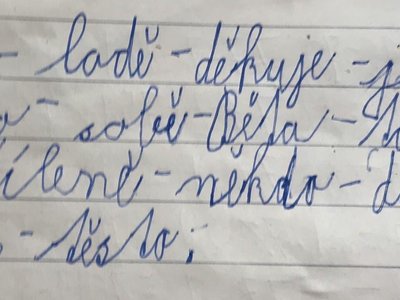 - ladě - děkuje - j
- sobě - Běta -
íleně - někdo - d
- těsto;